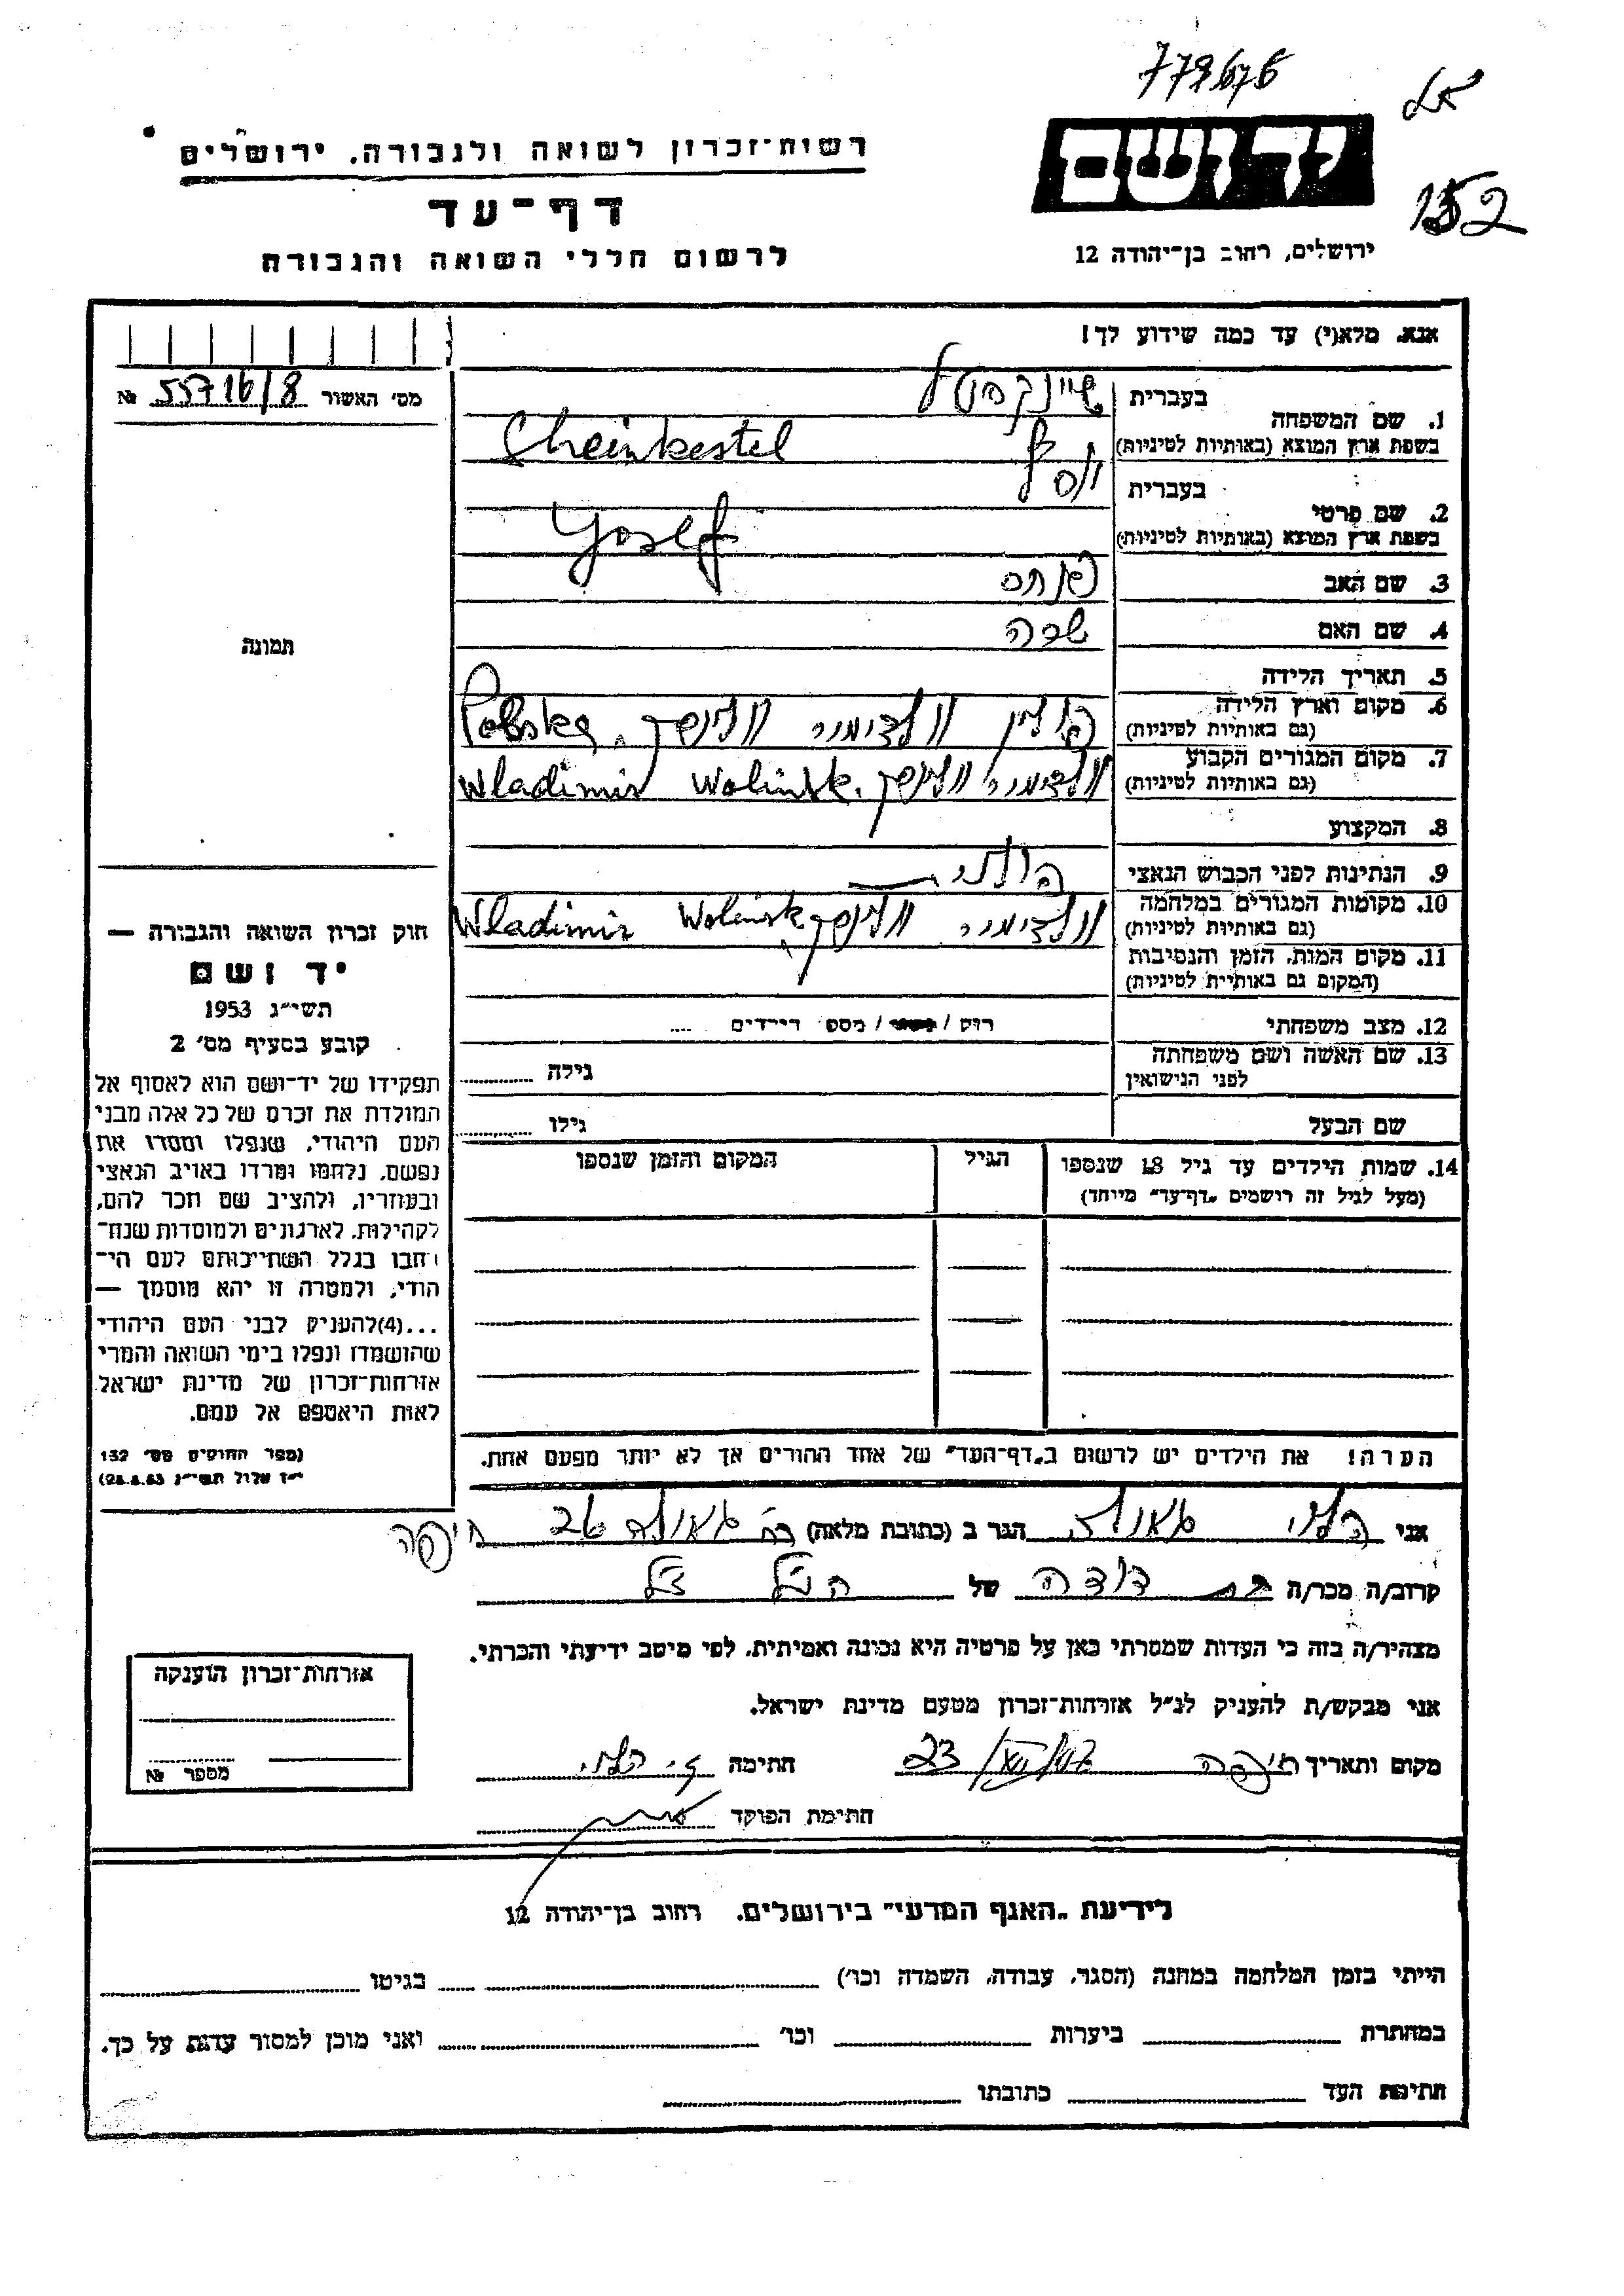 779676
152
יד ושם
ירושלים, רחוב בן־יהודה 12
רשות־זכרון לשואה ולגבורה, ירושלים
דף־עד
לרשום חללי השואה והגבורה
אנא, מלא(י) עד כמה שידוע לך!
מס׳ האשור 55716/8 №
1. שם המשפחה
בעברית שיינקסטל
בשפת ארץ המוצא (באותיות לטיניות) Cheinkestel
2. שם פרטי
בעברית יוסף
בשפת ארץ המוצא (באותיות לטיניות) Yosef
3. שם האב פנחס
4. שם האם שרה
5. תאריך הלידה
6. מקום וארץ הלידה (גם באותיות לטיניות) פולין ולדימיר וולינסק, Polska
7. מקום המגורים הקבוע (גם באותיות לטיניות) ולדימיר וולינסק, Wladimir Wolinsk
8. המקצוע
9. הנתינות לפני הכבוש הנאצי פולני
10. מקומות המגורים במלחמה (גם באותיות לטיניות) ולדימיר וולינסק, Wladimir Wolinsk
11. מקום המות, הזמן והנסיבות
(המקום גם באותיות לטיניות)
12. מצב משפחתי רוק / נשוי / מספ׳ הילדים
13. שם האשה ושם משפחתה לפני הנישואין גילה
שם הבעל גילו
14. שמות הילדים עד גיל 18 שנספו הגיל המקום והזמן שנספו
(מעל לגיל זה רושמים „דף־עד״ מיוחד)
הערה! את הילדים יש לרשום ב„דף־העד״ של אחד ההורים אך לא יותר מפעם אחת.
תמונה
חוק זכרון השואה והגבורה —
יד ושם
תשי״ג 1953
קובע בסעיף מס׳ 2
תפקידו של יד־ושם הוא לאסוף אל
המולדת את זכרם של כל אלה מבני
העם היהודי, שנפלו ומסרו את
נפשם, נלחמו ומרדו באויב הנאצי
ובעוזריו, ולהציב שם וזכר להם,
לקהילות, לארגונים ולמוסדות שנח־
רבו בגלל השתייכותם לעם הי־
הודי, ולמטרה זו יהא מוסמך —
...(4)להעניק לבני העם היהודי
שהושמדו ונפלו בימי השואה והמרי
אזרחות־זכרון של מדינת ישראל
לאות היאספם אל עמם.
(ספר החוקים מס׳ 132
י״ז אלול תשי״ג 28.8.53)
אני גאולה הגר ב (כתובת מלאה) רח׳ גאולה 26 חיפה
קרוב/ה מכר/ה בת דודה של הנ״ל ז״ל
מצהיר/ה בזה כי העדות שמסרתי כאן על פרטיה היא נכונה ואמיתית, לפי מיטב ידיעתי והכרתי.
אני מבקש/ת להעניק לנ״ל אזרחות־זכרון מטעם מדינת ישראל.
מקום ותאריך חיפה 23 חתימה
חתימת הפוקד
אזרחות־זכרון הוענקה
מספר №
לידיעת „האגף המדעי״ בירושלים, רחוב בן־יהודה 12
הייתי בזמן המלחמה במחנה (הסגר, עבודה, השמדה וכו׳) בגיטו
במחתרת ביערות וכו׳ ואני מוכן למסור עדות על כך.
חתימת העד כתובתו